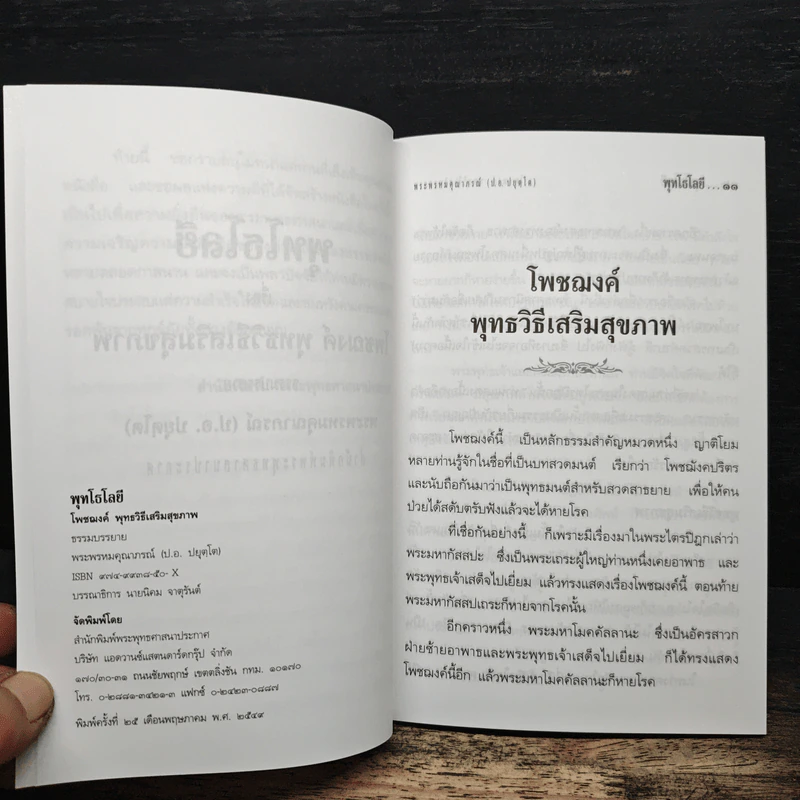 พุทโธโลยี
โพชฌงค์ พุทธวิธีเสริมสุขภาพ
ธรรมบรรยาย
พระพรหมคุณาภรณ์ (ป.อ. ปยุตฺโต)
ISBN ๙๗๔-๙๙๓๘-๕๐- X
บรรณาธิการ นายนิคม จาตุรันต์
จัดพิมพ์โดย
สำนักพิมพ์พระพุทธศาสนาประกาศ
บริษัท แอดวานซ์แสตนดาร์ดกรุ๊ป จำกัด
๑๗๐/๓๐-๓๑ ถนนชัยพฤกษ์ เขตตลิ่งชัน กทม. ๑๐๑๗๐
โทร. ๐-๒๘๘๑-๓๔๒๑-๓ แฟกซ์ ๐-๒๔๒๓-๐๘๘๗
พิมพ์ครั้งที่ ๒๕ เดือนพฤษภาคม พ.ศ. ๒๕๔๙
พระพรหมคุณาภรณ์ (ป.อ.ปยุตฺโต)
พุทโธโลยี ... ๑๑
โพชฌงค์
พุทธวิธีเสริมสุขภาพ
โพชฌงค์นี้ เป็นหลักธรรมสำคัญหมวดหนึ่ง ญาติโยม
หลายท่านรู้จักในชื่อที่เป็นบทสวดมนต์ เรียกว่า โพชฌังคปริตร
และนับถือกันมาว่าเป็นพุทธมนต์สำหรับสวดสาธยาย เพื่อให้คน
ป่วยได้สดับตรับฟังแล้วจะได้หายโรค
ที่เชื่อกันอย่างนี้ ก็เพราะมีเรื่องมาในพระไตรปิฎกเล่าว่า
พระมหากัสสปะ ซึ่งเป็นพระเถระผู้ใหญ่ท่านหนึ่งเคยอาพาธ และ
พระพุทธเจ้าเสด็จไปเยี่ยม แล้วทรงแสดงเรื่องโพชฌงค์นี้ ตอนท้าย
พระมหากัสสปเถระก็หายจากโรคนั้น
อีกคราวหนึ่ง พระมหาโมคคัลลานะ ซึ่งเป็นอัครสาวก
ฝ่ายซ้ายอาพาธและพระพุทธเจ้าเสด็จไปเยี่ยม ก็ได้ทรงแสดง
โพชฌงค์นี้อีก แล้วพระมหาโมคคัลลานะก็หายโรค